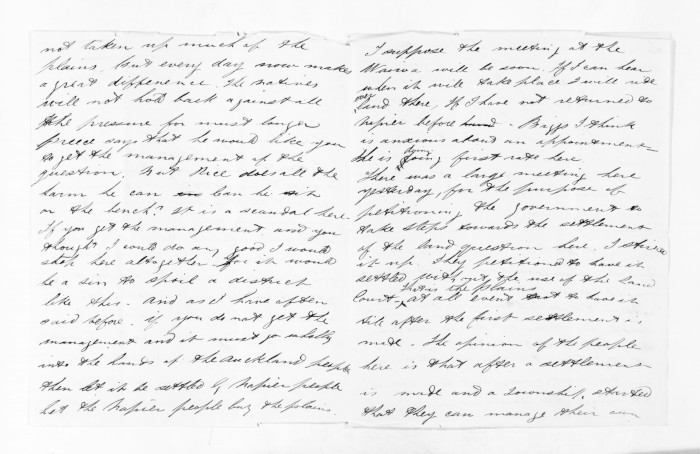 not taken up much of the
plains, but every day now makes
a great difference. The natives
will not hold back against all
the pressure for much longer
Preece says that he would like you
to get the management of the
question. But Price does all the
harm he can can he sit
on the bench? It is a scandal here
If you get the management and you
thought I could do any good I would
stop here altogether for it would
be a sin to spoil a district
like this. And as I have often
said before. if you do not get the
management and it must go wholly
into the hands of the Auckland people
then let it be settled by Napier people
Let the Napier people buy the plains.
I suppose the meeting at the
Wairoa will be soon. If I can hear
when it will take place I will ride
over
land there, If I have not returned to
Napier before. Biggs I think
is anxious about an appointment
He is doing first rate here
There was a large meeting here
yesterday, for the purpose of
petitioning the government to
take steps towards the settlement
of the land question here. I stirred
it up. They petitioned to have it
settled without the use of the Land
that is the plains
Court, at all event to have it
sit after the first settlement is
made. The opinion of the people
here is that after a settlement
is made and a township started
that they can manage their own